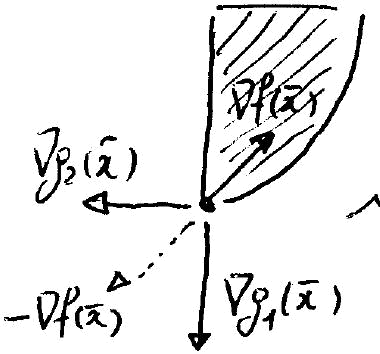 ∇f(x̄)
∇g₂(x̄)
-∇f(x̄)
∇g₁(x̄)